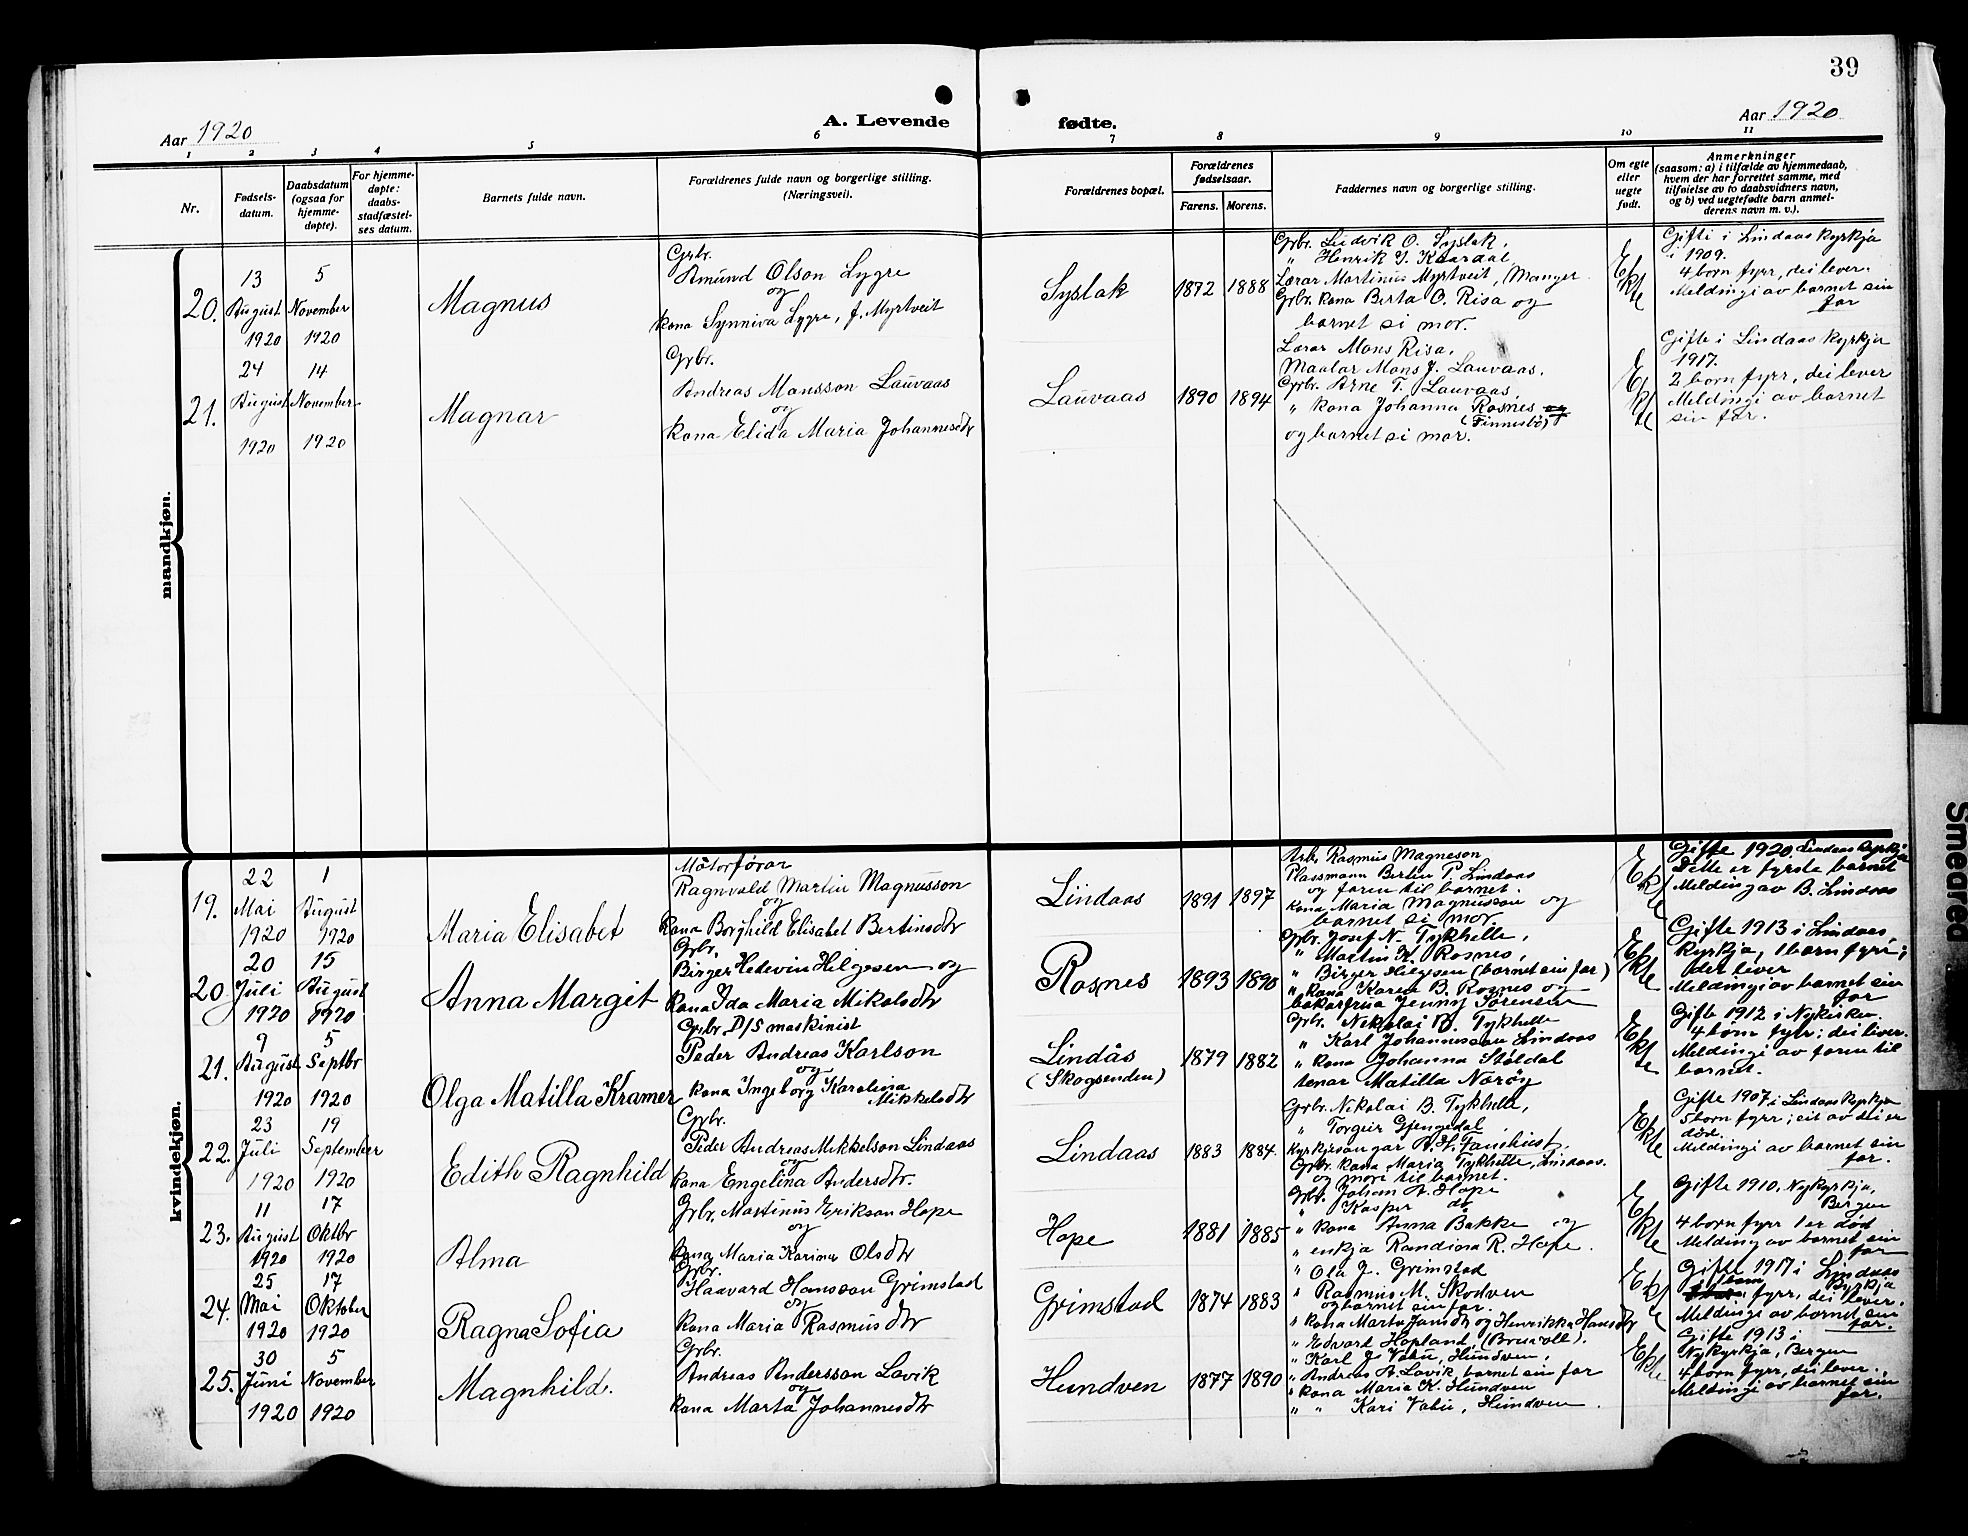 39
A. Levende fødte.
Aar 1920
Aar 1920
1 2 3 4 5 6 7 8 9 10 11
Nr.
Fødsels-
datum.
Daabsdatum
(ogsaa for
hjemme-
døpte).
For hjemme-
døpte:
daabs-
stadfæstel-
ses datum.
Barnets fulde navn.
Forældrenes fulde navn og borgerlige stilling.
(Næringsvei).
Forældrenes bopæl.
Forældrenes
fødselsaar.
Farens. Morens.
Faddernes navn og borgerlige stilling.
Om egte
eller
uegte
født.
Anmerkninger
(saasom: a) i tilfælde av hjemmedaab,
hvem der har forrettet samme, med
tilføielse av to daabsvidners navn,
og b) ved uegtefødte barn anmel-
derens navn m. v.).
mandkjøn.
20.
13
August
1920
5
November
1920
Magnus
Grbr.
Amund Olson Lygre
og
kona Synniva Lygre, f. Myrtveit
Syslak
1872 1888
Grbr. Ludvik O. Syslak,
" Henrik I. Kaardal,
Lærar Martinus Myrtveit, Manger
Grbr. kona Berta O. Risa og
barnet si mor.
Ekte
Gifti i Lindaas kyrkja
i 1909.
4 born fyrr, dei lever.
Meldingi av barnet sin
far
21.
24
August
1920
14
November
1920
Magnar
Grbr.
Andreas Mansson Lauvaas
og
kona Elida Maria Johannesdtr
Lauvaas
1890 1894
Lærar Mons Risa,
Maalar Mons J. Lauvaas.
Grbr. Arne T. Lauvaas,
" kona Johanna Rosnes og
(Finnesbø)
og barnet si mor.
Ekte
Gifte i Lindaas kyrkja
1917.
2 born fyrr, dei lever
Meldingi av barnet
sin far.
kvindekjøn.
19.
22
Mai
1920
1
August
1920
Maria Elisabet
Motorførar
Ragnvald Martin Magnusson
og
kona Borghild Elisabet Bertinsdtr
Lindaas
1891 1897
Arb. Rasmus Magneson
Plassmann Bertin P. Lindaas
og faren til barnet.
kona Maria Magnusson og
barnet si mor.
Ekte
Gifte 1920. Lindaas kyrkja
Dette er fyrste barnet
Melding av B. Lindaas
20.
20
Juli
1920
15
August
1920
Anna Margit
Grbr.
Birger Hedevin Helgesen og
kona Ida Maria Mikalsdtr
Rosnes
1893 1890
Grbr. Josef N. Tykhelle,
" Martin K. Rosnes,
" Birger Helgesen (barnet sin far)
" kona Karen B. Rosnes og
bakarfrua Jenny Sørensen
Ekte
Gifte 1913 i Lindaas
kyrkja, 1 born fyrr;
det lever
Meldingi av barnet sin
far
21.
9
August
1920
5
Septbr
1920
Olga Matilla Kramer
Grbr. D/S maskinist
Peder Andreas Karlson
og
kona Ingeborg Karolina
Mikkelsdtr
Lindås
(Skogsenden)
1879 1882
Grbr. Nikolai B. Tykhelle
" Karl Johannessen Lindaas
" kona Johanna Støldal
tenar Matilla Narøy
Ekte
Gifte 1912 i Nykirken.
4 born fyrr; dei lever.
Meldingi av faren til
barnet.
22.
23
Juli
1920
19
September
1920
Edith Ragnhild
Grbr.
Peder Andreas Mikkelson Lindaas
og
kona Engelina Andersdtr.
Lindaas
1883 1884.
Grbr. Nikolai B. Tykhelle,
" Torgeir Gjengedal
Kyrkjesongar A. H. Fanehust.
Grbr. kona Maria Tykhelle, Lindaas.
og mori til barnet.
Ekte
Gifte 1907 i Lindaas kyrkja
5 born fyrr; eit av dei er
død.
Meldingi av barnet sin
far.
23.
11
August
1920
17
Oktbr
1920
Alma
Grbr. Martinus Erikson Hope
og
kona Maria Karina Olsdtr
Hope
1881 1885
Grbr. Johan A. Hope
" Kasper do
" kona Anna Bakke og
" enkja Randina R. Hope.
Ekte
Gifte 1910. Nykyrkja,
Bergen
4 born fyrr 1 er død
Melding av barnet sin
far
24.
25
Mai
1920
17
Oktober
1920
Ragna Sofia
Grbr.
Haavard Hansson Grimstad
og
kona Maria Rasmusdtr
Grimstad
1874 1883
" Ola J. Grimstad
" Rasmus M. Skodven
og barnet sin far.
" kona Marta Jansdtr og Henrikka Hansdtr
Ekte
Gifte 1917 i Lindaas
kyrkja
born fyrr, dei lever.
Meldingi av barnet sin
far.
25.
30
Juni
1920
5
November
1920
Magnhild.
Grbr.
Andreas Andersson Lavik
og
kona Marta Johannesdtr
Hundven
1877 1890
" Edvard Hopland (Brusvoll).
" Karl J. Vabu, Hundven,
" Andreas A. Lavik barnet sin far
" kona Maria K. Hundven
" " Kari Vabu, Hundven.
Ekte
Gifte 1913 i
Nykyrkja, Bergen
4 born fyrr, dei lever.
Meldingi av barnet sin
far.
Smeared